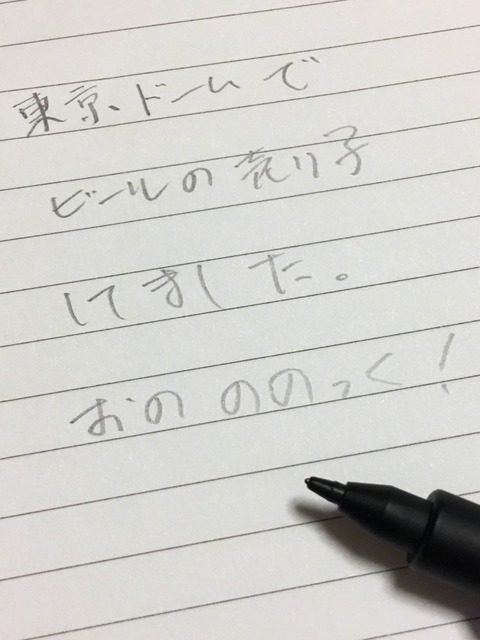 東京、ドームで
ビールの売り子
してました。
おの ののっく！